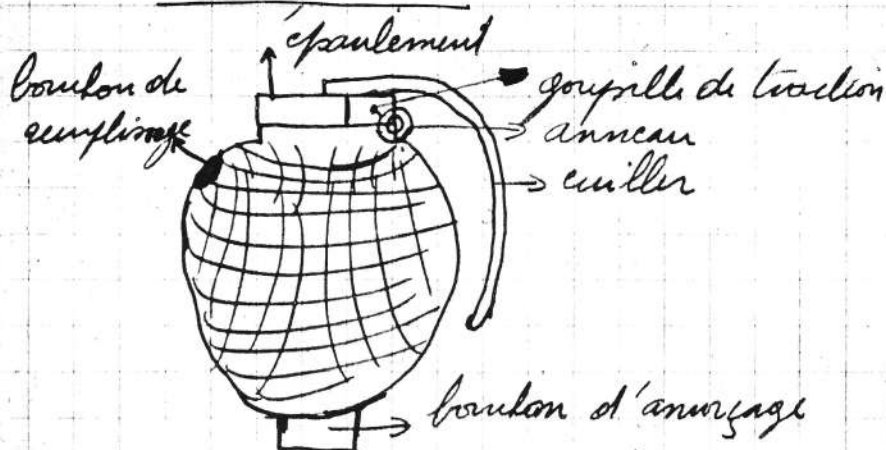 épaulement
bouchon de
remplissage
goupille de traction
anneau
cuiller
bouchon d'amorçage